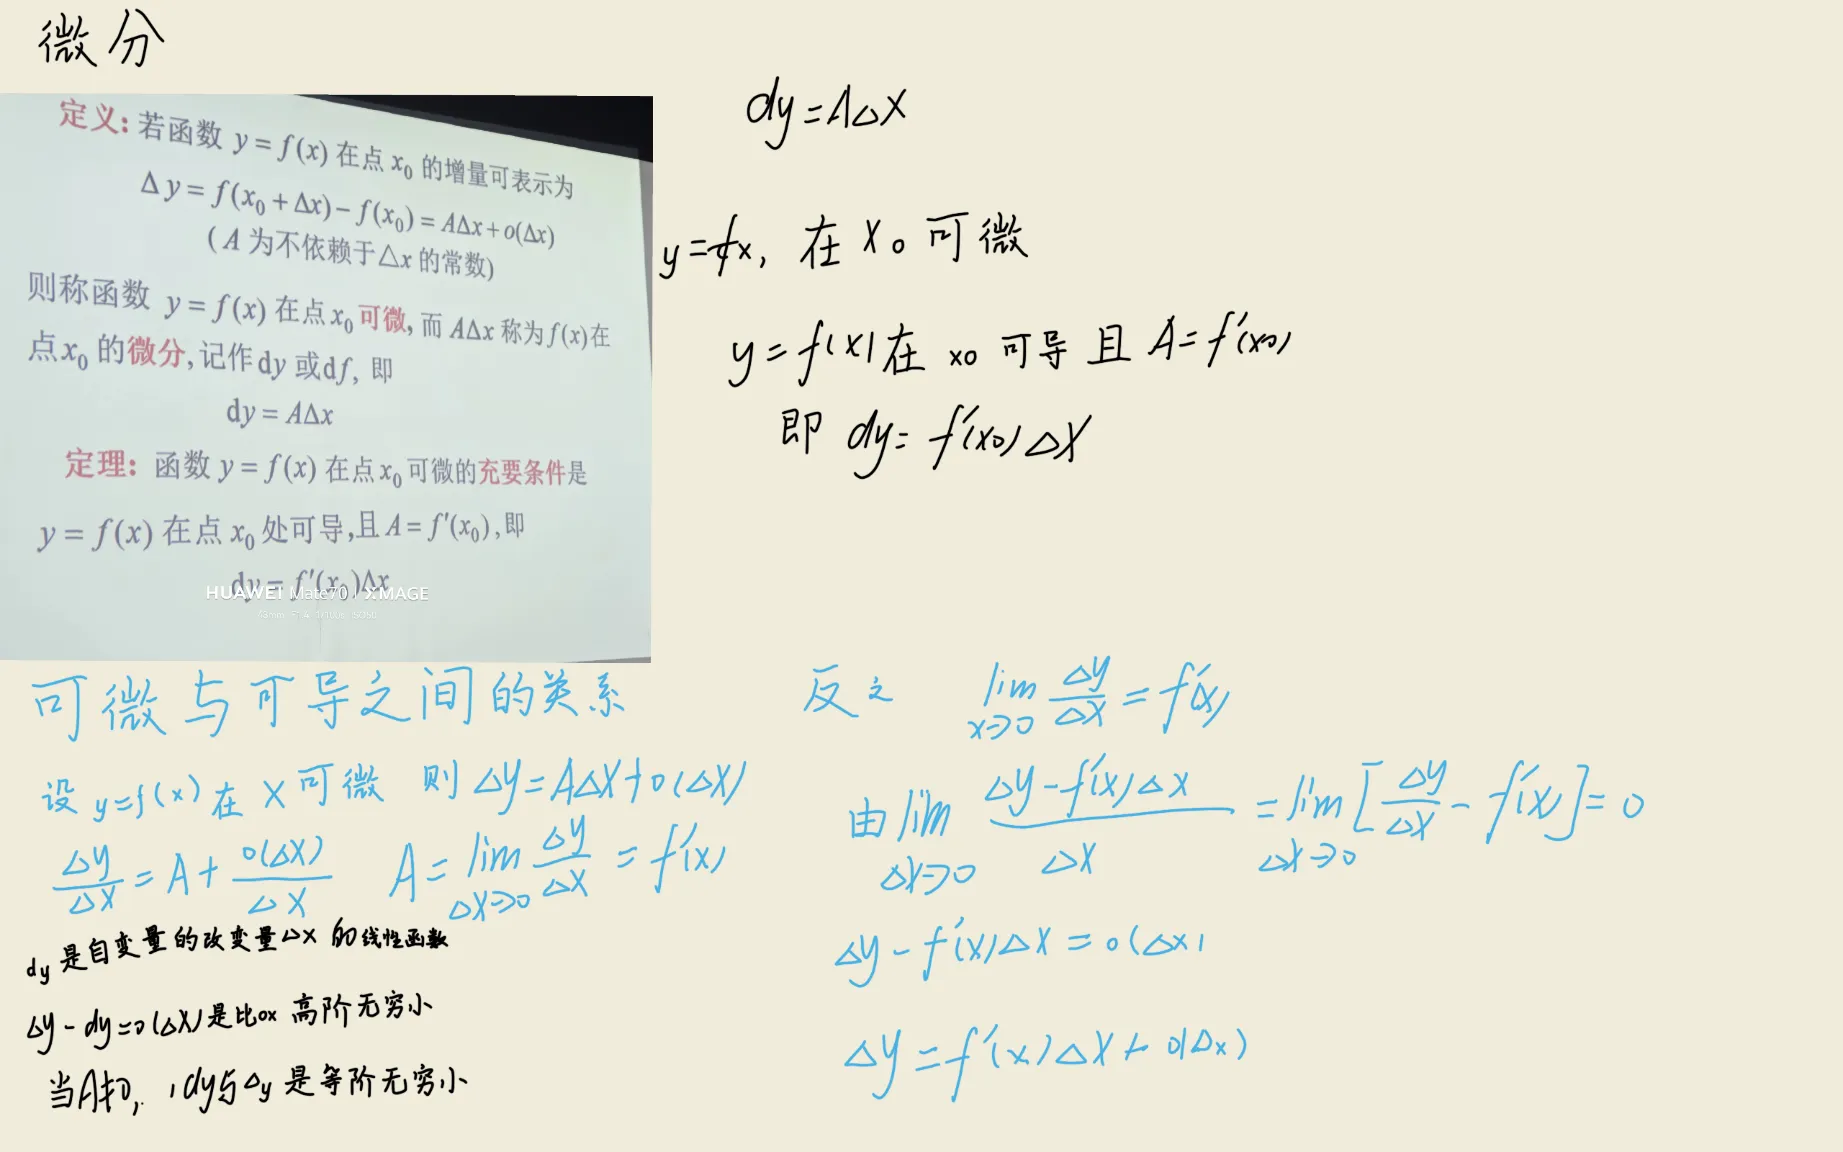 微分
定义: 若函数 y = f(x) 在点 x₀ 的增量可表示为
Δy = f(x₀ + Δx) − f(x₀) = AΔx + o(Δx)
( A 为不依赖于△x 的常数)
则称函数 y = f(x) 在点 x₀ 可微, 而 AΔx 称为 f(x) 在
点 x₀ 的微分, 记作 dy 或 df, 即
dy = AΔx
定理: 函数 y = f(x) 在点 x₀ 可微的充要条件是
y = f(x) 在点 x₀ 处可导, 且 A = f′(x₀), 即
dy = f′(x₀)Δx
HUAWEI Mate70 / XMAGE
dy=A△X
y=fx, 在 X0 可微
y=f(x)在 x0 可导 且 A=f′(x0)
即 dy=f′(x0)△X
可微与可导之间的关系
设 y=f(x) 在 X 可微 则 △y=A△X+o(△X)
△y/△X = A + o(△X)/△X A = lim △X→0 △y/△X = f′(x)
dy 是自变量的改变量△x 的线性函数
△y-dy=o(△X)是比ox 高阶无穷小
当A≠0, dy与△y 是等阶无穷小
反之 lim x→0 △y/△X = f′(x)
由 lim △X→0 (△y-f′(x)△X)/△X = lim △X→0 [△y/△X - f′(x)] = 0
△y - f′(x)△X = o(△x)
△y = f′(x)△X + o(△x)